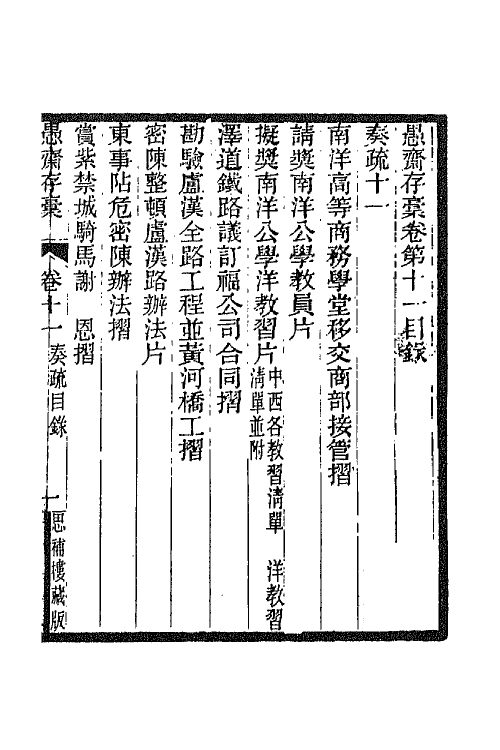 愚齋存稾卷第十一目錄
奏疏十一
南洋高等商務學堂移交商部接管摺
請獎南洋公學教員片
擬獎南洋公學洋教習片中西各教習清單 洋教習清單並附
澤道鐵路議訂福公司合同摺
勘驗盧漢全路工程並黃河橋工摺
密陳整頓盧漢路辦法片
東事阽危密陳辦法摺
賞紫禁城騎馬謝 恩摺
愚齋存稾 卷十一 奏疏目錄 一 思補樓藏版